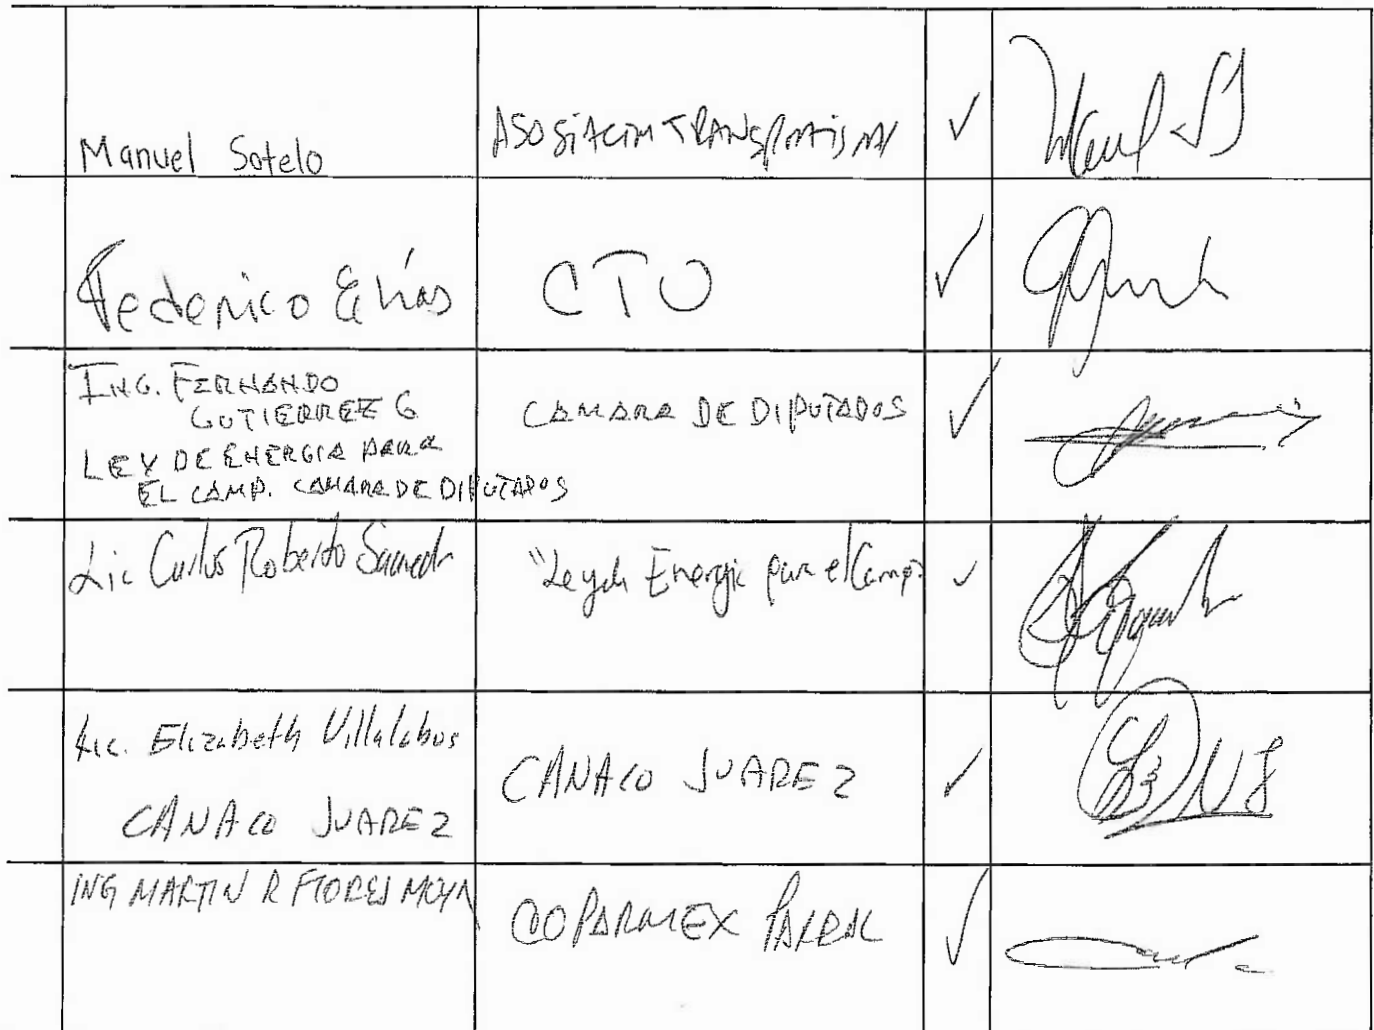 Manuel Sotelo
ASOSIACION TRANSPORTISTAS
✓
Federico Elías
CTO
✓
ING. FERNANDO
GUTIERREZ G
LEY DE ENERGIA PARA
EL CAMP. CAMARA DE DIPUTADOS
CAMARA DE DIPUTADOS
✓
Lic Carlos Roberto
"Ley de Energia para el Campo
✓
Lic. Elizabeth Villalobos
CANACO JUAREZ
CANACO JUAREZ
✓
ING MARTIN R FLORES MOYA
COPARMEX PARRAL
✓